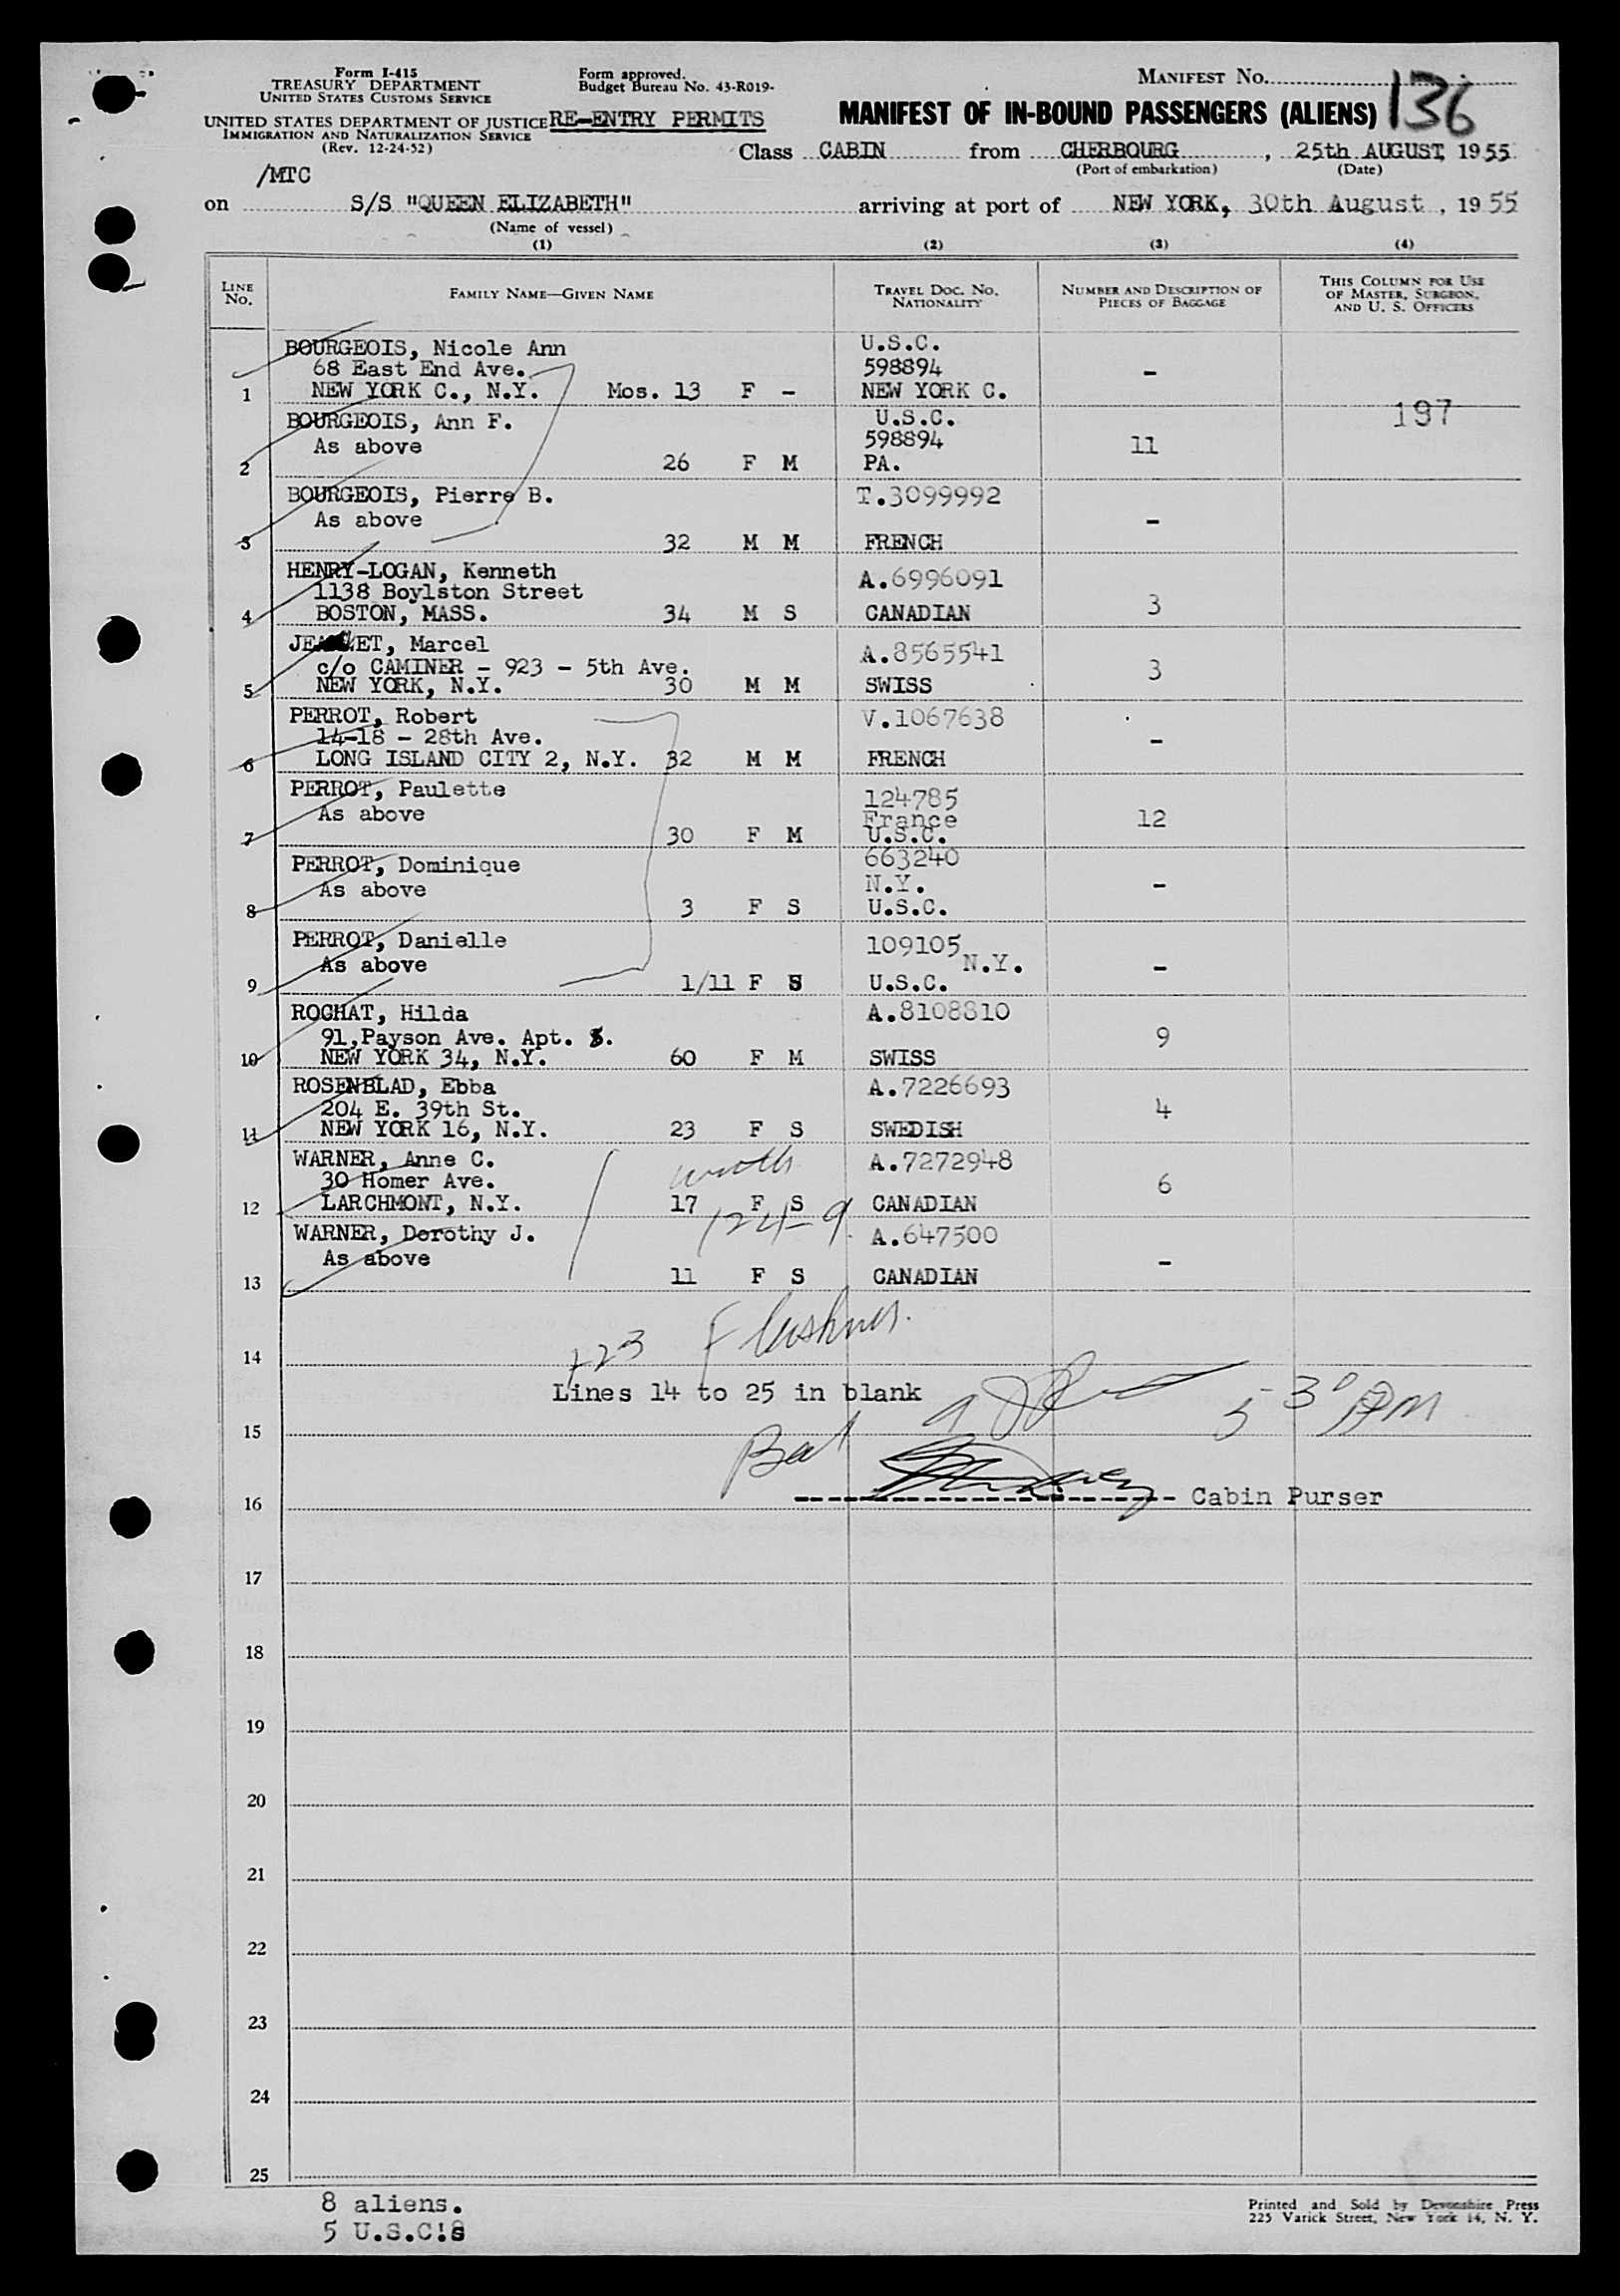 Form I-415
TREASURY DEPARTMENT
UNITED STATES CUSTOMS SERVICE
UNITED STATES DEPARTMENT OF JUSTICE
IMMIGRATION AND NATURALIZATION SERVICE
(Rev. 12-24-52)
Form approved.
Budget Bureau No. 43-R019-
RE-ENTRY PERMITS
MANIFEST NO.
136
MANIFEST OF IN-BOUND PASSENGERS (ALIENS)
Class CABIN from CHERBOURG, 25th AUGUST, 1955
(Port of embarkation) (Date)
/MTC
on S/S "QUEEN ELIZABETH" arriving at port of NEW YORK, 30th August, 1955
(Name of vessel)
(1) (2) (3) (4)
LINE NO.
FAMILY NAME—GIVEN NAME
TRAVEL DOC. NO. NATIONALITY
NUMBER AND DESCRIPTION OF PIECES OF BAGGAGE
THIS COLUMN FOR USE OF MASTER, SURGEON, AND U. S. OFFICERS
BOURGEOIS, Nicole Ann U.S.C.
68 East End Ave. 598894 -
1 NEW YORK C., N.Y. Mos. 13 F - NEW YORK C.
197
BOURGEOIS, Ann F. U.S.C.
As above 598894 11
2 26 F M PA.
BOURGEOIS, Pierre B. T.3099992
As above -
3 32 M M FRENCH
HENRY-LOGAN, Kenneth A.6996091
1138 Boylston Street 3
4 BOSTON, MASS. 34 M S CANADIAN
JE ET, Marcel A.8565541
c/o CAMINER - 923 - 5th Ave. 3
5 NEW YORK, N.Y. 30 M M SWISS
PERROT, Robert V.1067638
14-18 - 28th Ave. -
6 LONG ISLAND CITY 2, N.Y. 32 M M FRENCH
PERROT, Paulette 124785
As above France 12
7 30 F M U.S.C.
PERROT, Dominique 663240
As above N.Y. -
8 3 F S U.S.C.
PERROT, Danielle 109105
As above N.Y. -
9 1/11 F S U.S.C.
ROCHAT, Hilda A.8108810
91, Payson Ave. Apt. . 9
10 NEW YORK 34, N.Y. 60 F M SWISS
ROSENBLAD, Ebba A.7226693
204 E. 39th St. 4
11 NEW YORK 16, N.Y. 23 F S SWEDISH
WARNER, Anne C. with A.7272948
30 Homer Ave. 6
12 LARCHMONT, N.Y. 17 F S CANADIAN
124-9
WARNER, Dorothy J. A.647500
As above -
13 11 F S CANADIAN
14
Lines 14 to 25 in blank
5 30 PM
15
Bal
16 Cabin Purser
17
18
19
20
21
22
23
24
25
8 aliens.
5 U.S.C!s
Printed and Sold by Devonshire Press
225 Varick Street, New York 14, N. Y.